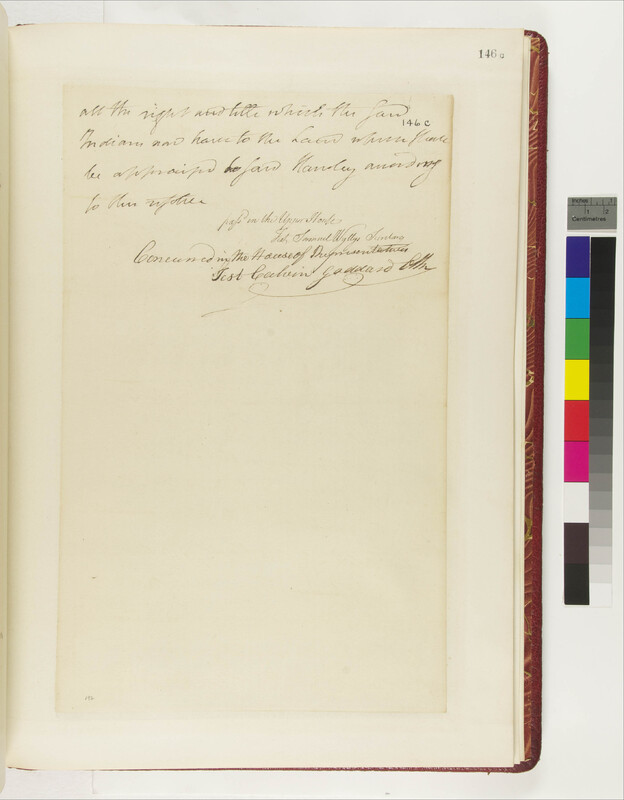 146 c
all the right and title which the said
146 c
Indians now have to the Land which shall
be appraised to said Handley according
to this
pass'd in the Upper House
Test, Samuel Wyllys Secretary
Concurred in the House of Representatives
Test Calvin Goddard Clk
Inches
1
Centimetres
2